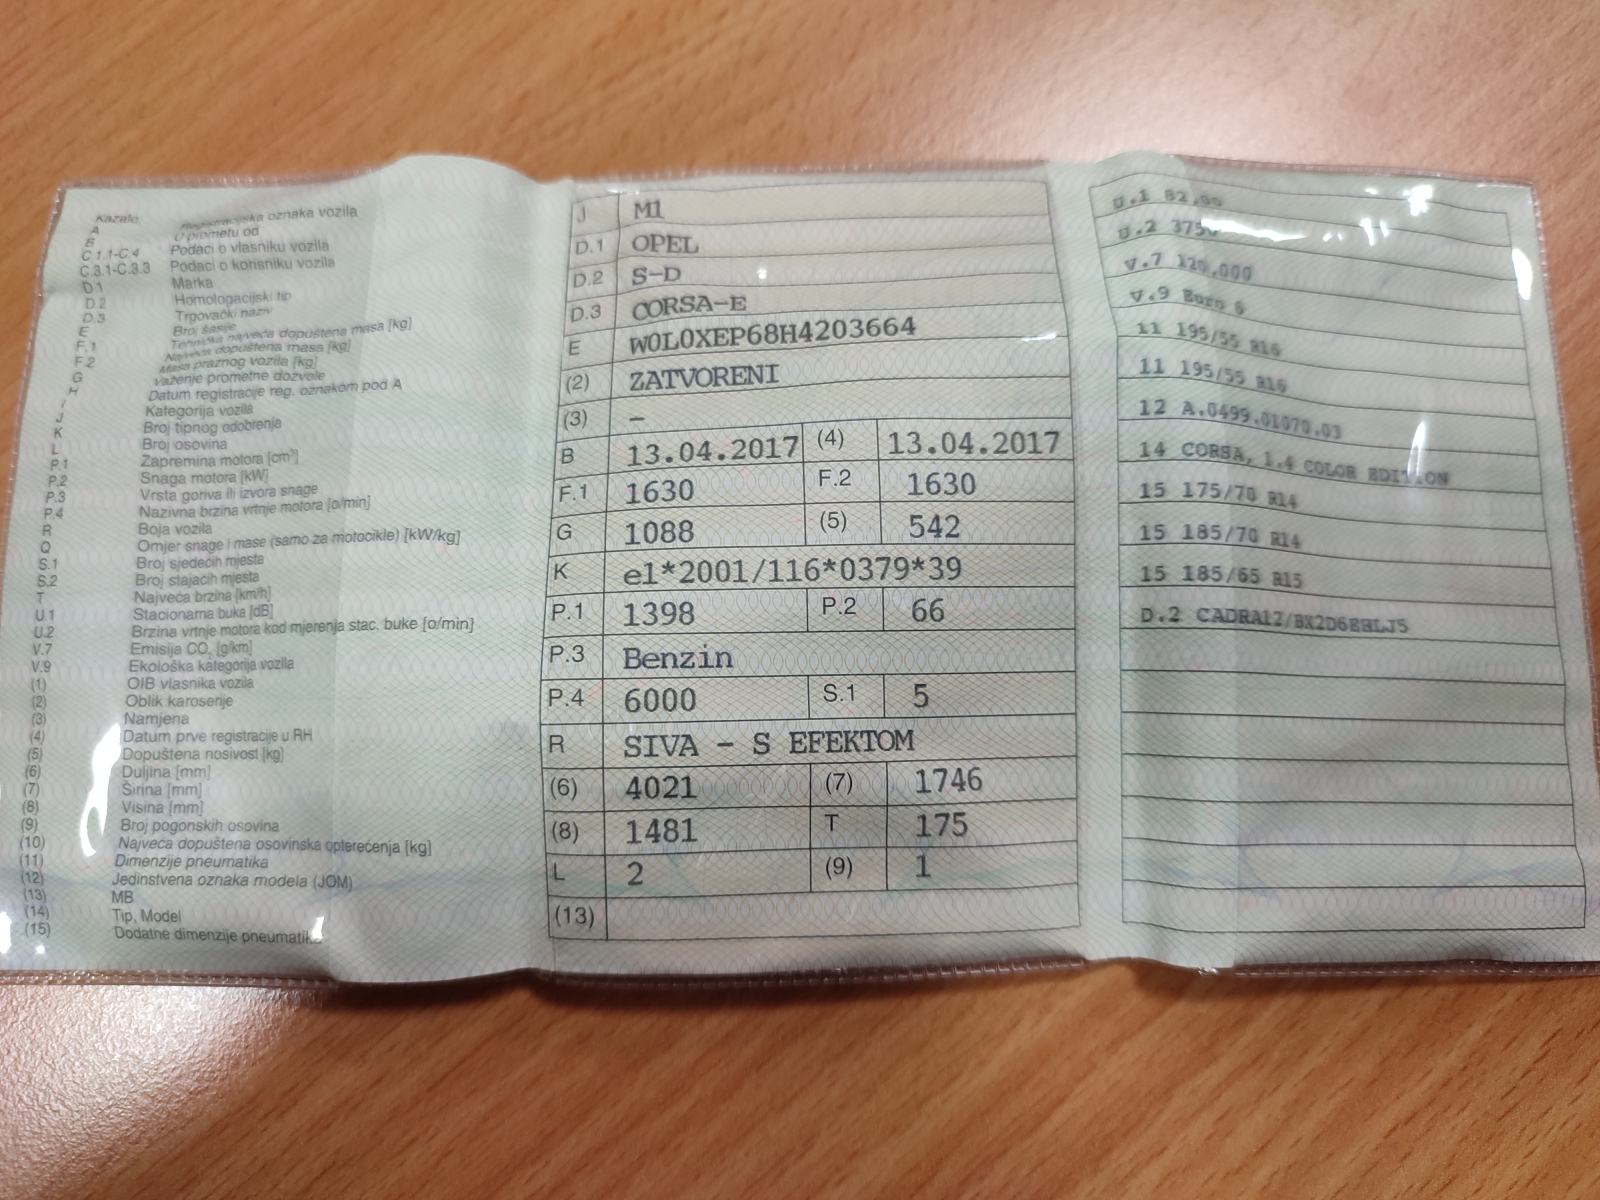 Kazalo:
A Registracijska oznaka vozila
B U prometu od
C.1.1-C.4 Podaci o vlasniku vozila
C.3.1-C.3.3 Podaci o korisniku vozila
D.1 Marka
D.2 Homologacijski tip
D.3 Trgovački naziv
E Broj šasije
F.1 Tehnička najveća dopuštena masa [kg]
F.2 Najveća dopuštena masa [kg]
G Masa praznog vozila [kg]
H Važenje prometne dozvole
I Datum registracije reg. oznakom pod A
J Kategorija vozila
K Broj tipnog odobrenja
L Broj osovina
P.1 Zapremina motora [cm³]
P.2 Snaga motora [kW]
P.3 Vrsta goriva ili izvora snage
P.4 Nazivna brzina vrtnje motora [o/min]
R Boja vozila
Q Omjer snage i mase (samo za motocikle) [kW/kg]
S.1 Broj sjedećih mjesta
S.2 Broj stajaćih mjesta
T Najveća brzina [km/h]
U.1 Stacionarna buka [dB]
U.2 Brzina vrtnje motora kod mjerenja stac. buke [o/min]
V.7 Emisija CO₂ [g/km]
V.9 Ekološka kategorija vozila
(1) OIB vlasnika vozila
(2) Oblik karoserije
(3) Namjena
(4) Datum prve registracije u RH
(5) Dopuštena nosivost [kg]
(6) Duljina [mm]
(7) Širina [mm]
(8) Visina [mm]
(9) Broj pogonskih osovina
(10) Najveća dopuštena osovinska opterećenja [kg]
(11) Dimenzije pneumatika
(12) Jedinstvena oznaka modela (JOM)
(13) MB
(14) Tip, Model
(15) Dodatne dimenzije pneumatika
J M1
D.1 OPEL
D.2 S-D
D.3 CORSA-E
E W0L0XEP68H4203664
(2) ZATVORENI
(3) –
B 13.04.2017 (4) 13.04.2017
F.1 1630 F.2 1630
G 1088 (5) 542
K e1*2001/116*0379*39
P.1 1398 P.2 66
P.3 Benzin
P.4 6000 S.1 5
R SIVA - S EFEKTOM
(6) 4021 (7) 1746
(8) 1481 T 175
L 2 (9) 1
(13)
U.1 82,00
U.2 3750
V.7 120,000
V.9 Euro 6
11 195/55 R16
11 195/55 R16
12 A.0499.01070.03
14 CORSA, 1.4 COLOR EDITION
15 175/70 R14
15 185/70 R14
15 185/65 R15
D.2